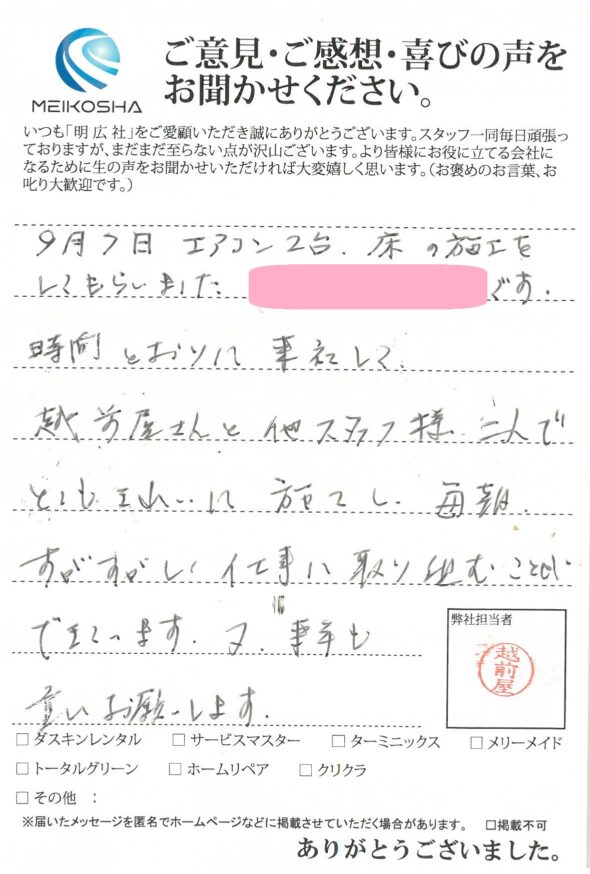 MEIKOSHA
ご意見・ご感想・喜びの声を
お聞かせください。
いつも「明広社」をご愛顧いただき誠にありがとうございます。スタッフ一同毎日頑張っ
ておりますが、まだまだ至らない点が沢山ございます。より皆様にお役に立てる会社に
なるために生の声をお聞かせいただければ大変嬉しく思います。（お褒めのお言葉、お
叱り大歓迎です。）
9月7日 エアコン2台、床の施工を
してもらいました です。
時間とおりに来社して、
越前屋さんと他スタッフ様 二人で
とてもきれいに 施工し、毎朝
すがすがしく仕事に取り組むことが
できています。又、来年も
お願いします。
弊社担当者
越前屋
□ ダスキンレンタル □ サービスマスター □ ターミニックス □ メリーメイド
□ トータルグリーン □ ホームリペア □ クリクラ
□ その他 ：
※届いたメッセージを匿名でホームページなどに掲載させていただく場合があります。 □掲載不可
ありがとうございました。